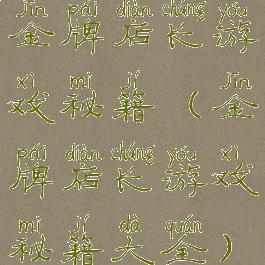 jīn pái diàn cháng yóu
金牌店长游
xì mì jí jīn
戏秘籍（金
pái diàn cháng yóu xì
牌店长游戏
mì jí dà quán
秘籍大全）